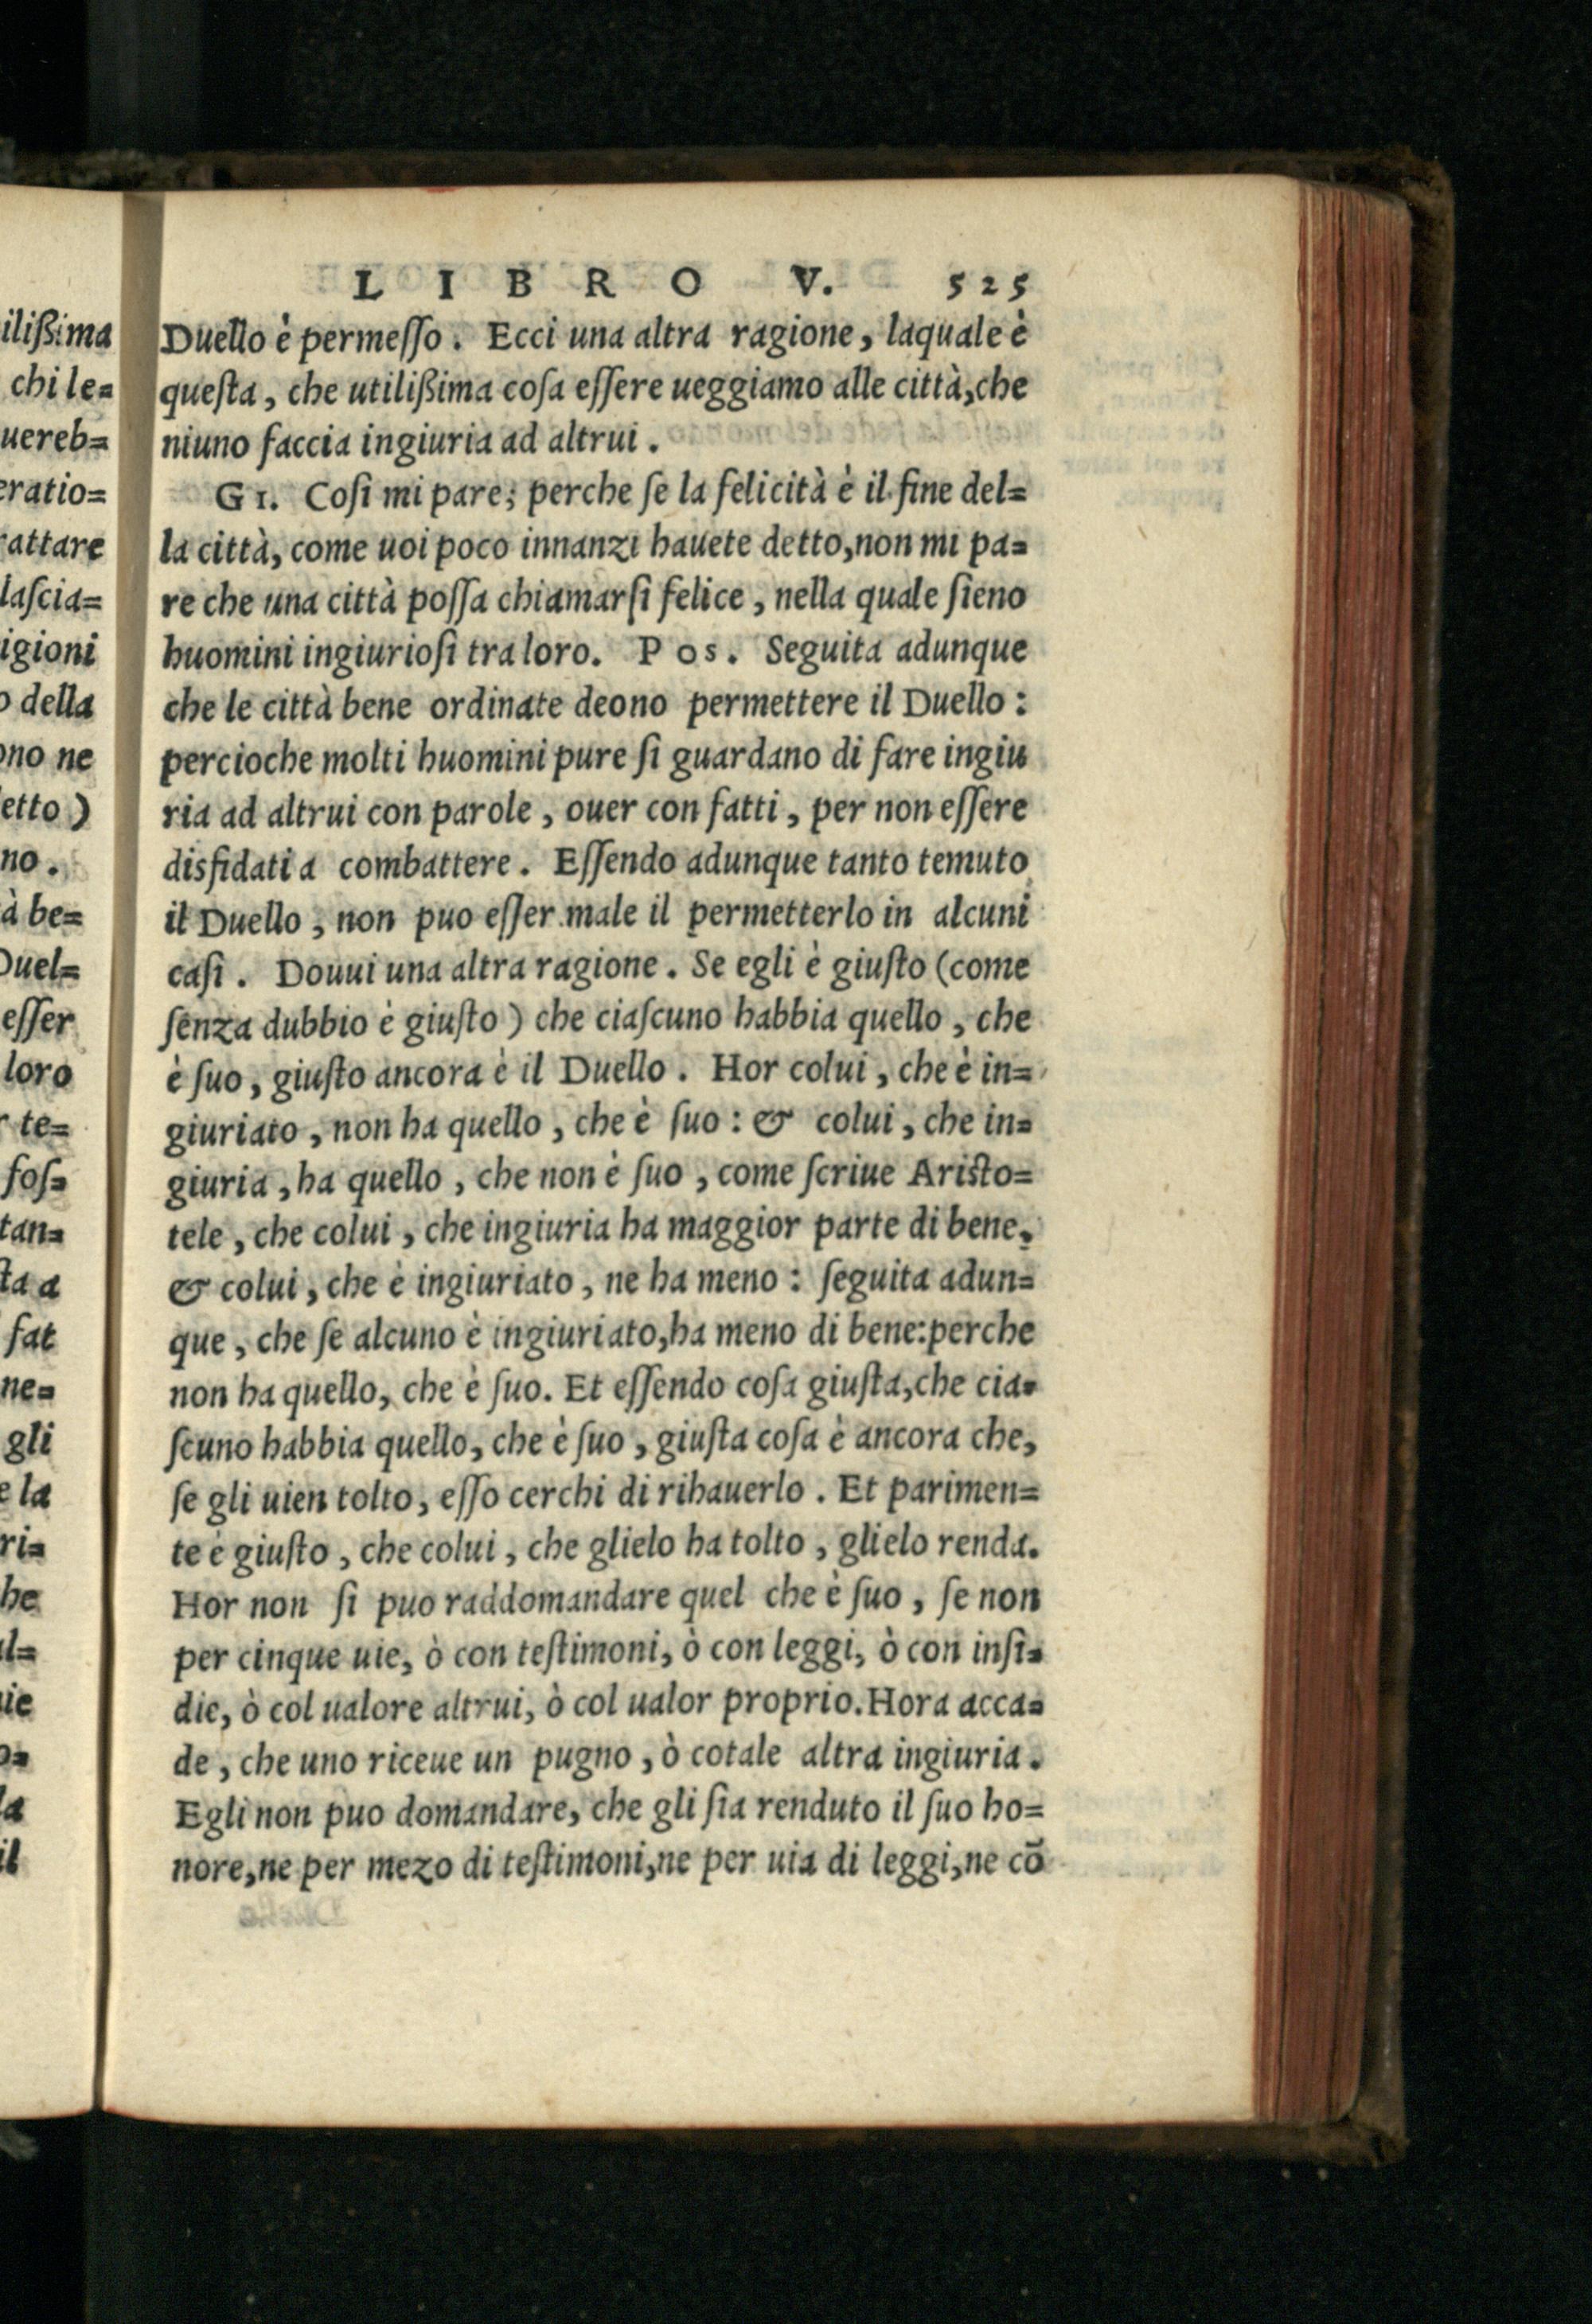 LIBRO V. 525
Duello è permeſſo. Ecci una altra ragione, laquale è
queſta, che utilißima coſa eſſere ueggiamo alle città, che
niuno faccia ingiuria ad altrui.
GI. Coſi mi pare; perche ſe la felicità è il fine del=
la città, come uoi poco innanzi hauete detto, non mi pa=
re che una città poſſa chiamarſi felice, nella quale ſieno
huomini ingiurioſi tra loro. Pos. Seguita adunque
che le città bene ordinate deono permettere il Duello:
percioche molti huomini pure ſi guardano di fare ingiu
ria ad altrui con parole, ouer con fatti, per non eſſere
disfidati a combattere. Eſſendo adunque tanto temuto
il Duello, non puo eſſer male il permetterlo in alcuni
caſi. Douui una altra ragione. Se egli è giuſto (come
ſenza dubbio è giuſto) che ciaſcuno habbia quello, che
è ſuo, giuſto ancora è il Duello. Hor colui, che è in=
giuriato, non ha quello, che è ſuo: & colui, che in=
giuria, ha quello, che non è ſuo, come ſcriue Ariſto=
tele, che colui, che ingiuria ha maggior parte di bene,
& colui, che è ingiuriato, ne ha meno: ſeguita adun=
que, che ſe alcuno è ingiuriato, ha meno di bene: perche
non ha quello, che è ſuo. Et eſſendo coſa giuſta, che cia=
ſcuno habbia quello, che è ſuo, giuſta coſa è ancora che,
ſe gli uien tolto, eſſo cerchi di rihauerlo. Et parimen=
te è giuſto, che colui, che glielo ha tolto, glielo renda.
Hor non ſi puo raddomandare quel che è ſuo, ſe non
per cinque uie, ò con teſtimoni, ò con leggi, ò con inſi=
die, ò col ualore altrui, ò col ualor proprio. Hora acca=
de, che uno riceue un pugno, ò cotale altra ingiuria.
Egli non puo domandare, che gli ſia renduto il ſuo ho=
nore, ne per mezo di teſtimoni, ne per uia di leggi, ne cō